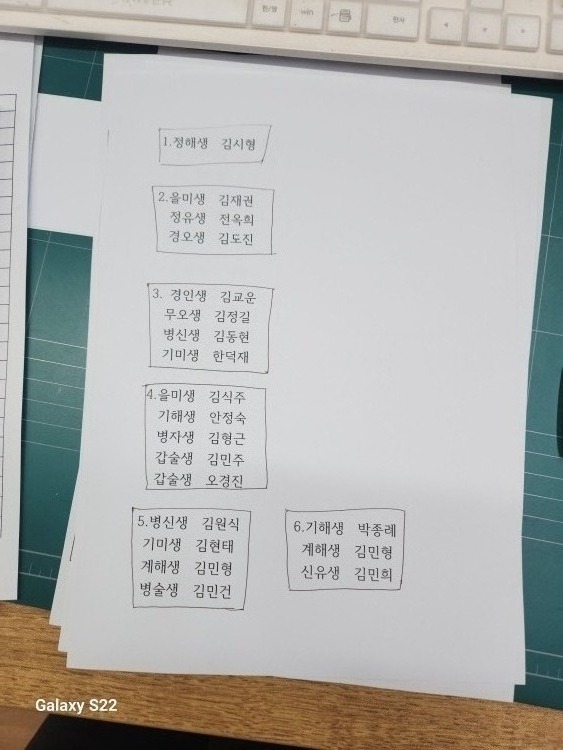 한/영
win
한자
1.정해생 김시형
2.을미생 김재권
정유생 전옥희
경오생 김도진
3. 경인생 김교운
무오생 김정길
병신생 김동현
기미생 한덕재
4.을미생 김식주
기해생 안정숙
병자생 김형근
갑술생 김민주
갑술생 오경진
5.병신생 김원식
기미생 김현태
계해생 김민형
병술생 김민건
6.기해생 박종례
계해생 김민형
신유생 김민희
Galaxy S22